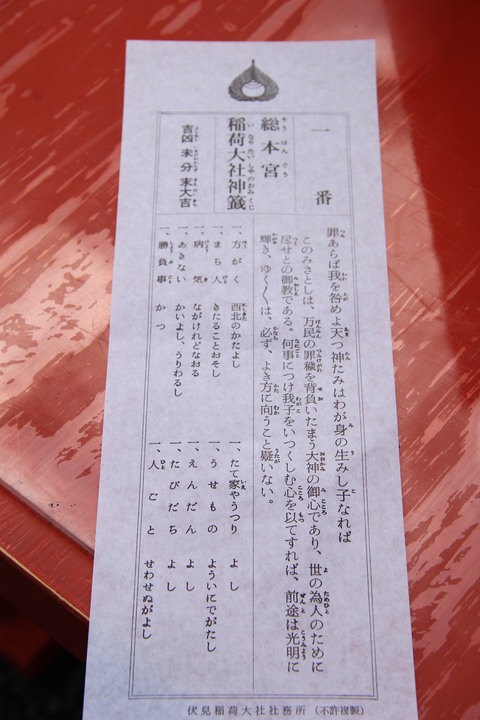 一番
総本宮
稲荷大社神籤
吉凶未分末大吉
罪あらば我を咎めよ天つ神たみはわが身の生みし子なれば
このみさとしは、万民の罪穢を背負いたまう大神の御心であり、世の為人のために
尽せとの御教である。何事につけ我子をいつくしむ心を以てすれば、前途は光明に
輝き、ゆく〱は、必ず、よき方に向うこと疑いない。
一、方がく 西北のかたよし
一、まち人 きたることおそし
一、病気 ながけれどなおる
一、あきない かいよし、うりわるし
一、勝負事 かつ
一、たて家やうつり よし
一、うせもの よういにでがたし
一、えんだん よし
一、たびだち よし
一、人むと せわせぬがよし
伏見稲荷大社社務所 (不許複製)